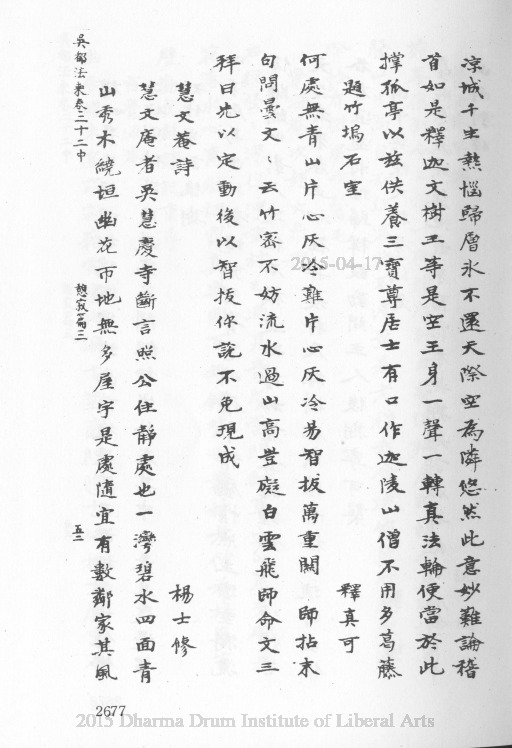 凉城千生熱惱歸層氷不還天際空為隣悠然此意妙難論稽
首如是釋迦文樹王等是空王身一聲一轉真法輪便當於此
撑孤亭以兹供養三寶尊居士有口作迦陵山僧不用多葛藤
題竹塢石室 釋真可
何處無青山片心灰冷難片心灰冷易智拔萬重關 師拈末
句問曇文〻云竹密不妨流水過山高豈礙白雲飛師命文三
拜曰先以定動後以智拔你說不免現成
慧文菴詩 楊士修
慧文庵者吳慧慶寺斷言照公住靜處也一灣碧水四面青
山秀木繞垣幽花帀地無多屋宇是處隨宜有數鄰家其風
吳都法乘卷二十二中 憩寂篇三 五二
2677
2015-04-17
2015 Dharma Drum Institute of Liberal Arts